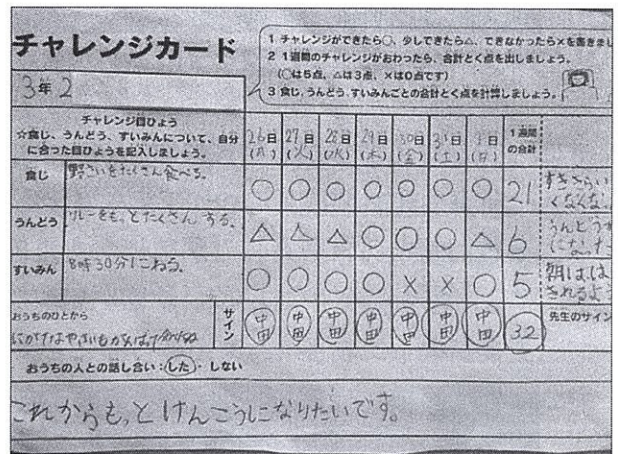 チャレンジカード
1 チャレンジができたら○、少しできたら△、できなかったら×を書きまし
2 1週間のチャレンジがおわったら、合計とく点を出しましょう。
(○は5点、△は3点、×は0点です)
3 食じ、うんどう、すいみんごとの合計とく点を計算しましょう。
3年 2
チャレンジ目ひょう
☆食じ、うんどう、すいみんについて、自分に合った目ひょうを記入しましょう。
26日(月) 27日(火) 28日(水) 29日(木) 30日(金) 31日(土) 日(日) 1週間の合計
食じ 野さいをたくさん食べる。 ○ ○ ○ ○ ○ ○ ○ 21 すききらい
くなくな
うんどう リレーをもっとたくさん する。 △ △ △ ○ ○ ○ △ 6 うんどうが
になった
すいみん 8時30分にねる。 ○ ○ ○ ○ × × ○ 5 朝はは
されるよ
おうちのひとから サイン 中田 中田 中田 中田 中田 中田 中田 32 先生のサイン
にがてなやさいもがんばって
おうちの人との話し合い:した・しない
これからもっとけんこうになりたいです。